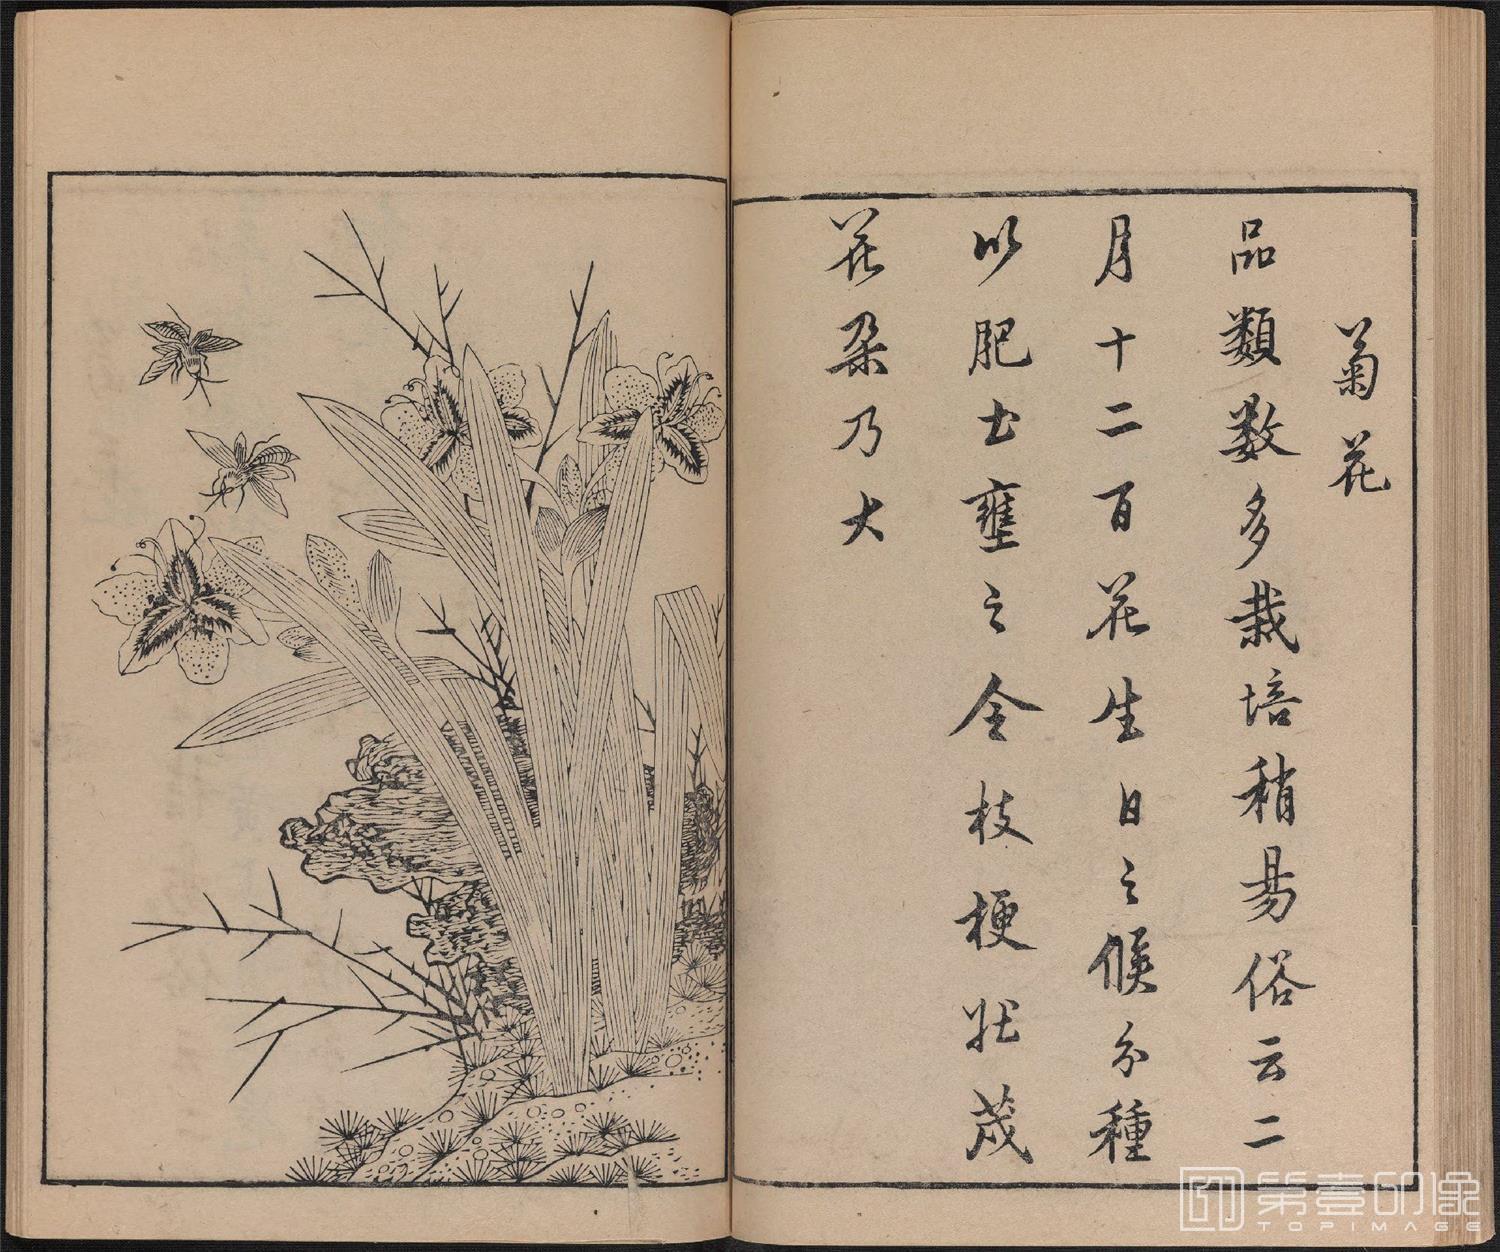 菊花
品類数多栽培稍易俗云二
月十二百花生日之候分種
以肥土壅之令枝梗壯茂
花朵乃大
第壹印像
TOPIMAGE